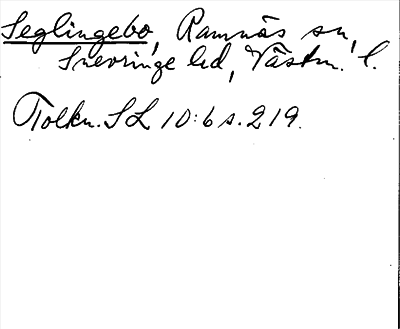 Seglingebo, Ramnäs sn,
Snevringe hd, Västm. l.
Tolkn. SL 10:6 s. 219.